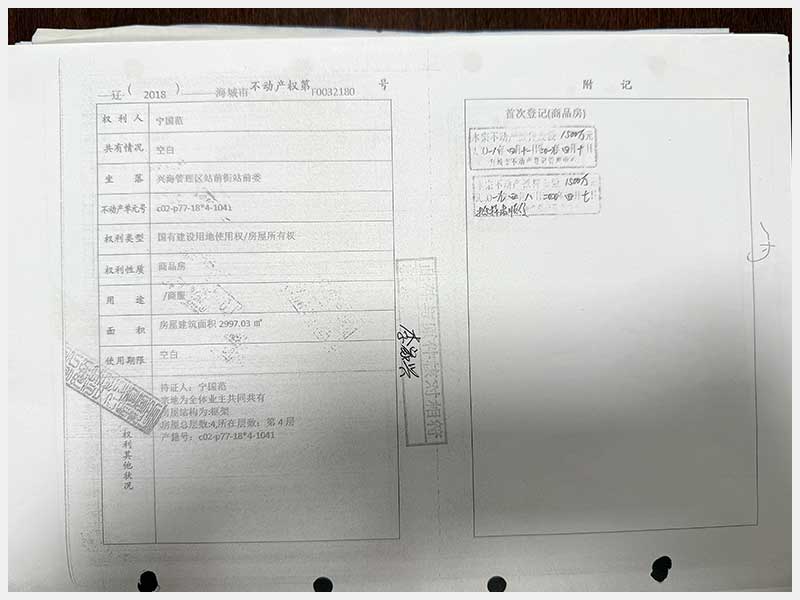 辽( 2018 ) 海城市 不动产权第 F0032180 号
权利人 宁国范
共有情况 空白
坐落 兴海管理区站前街站前委
不动产单元号 c02-p77-18*4-1041
权利类型 国有建设用地使用权/房屋所有权
权利性质 商品房
用途 /商服
面积 房屋建筑面积 2997.03 ㎡
使用期限 空白
权利其他状况
持证人：宁国范
宗地为全体业主共同共有
房屋结构为:框架
房屋总层数:4,所在层数：第 4 层
产籍号：c02-p77-18*4-1041
附记
首次登记(商品房)
1500万元
1500万